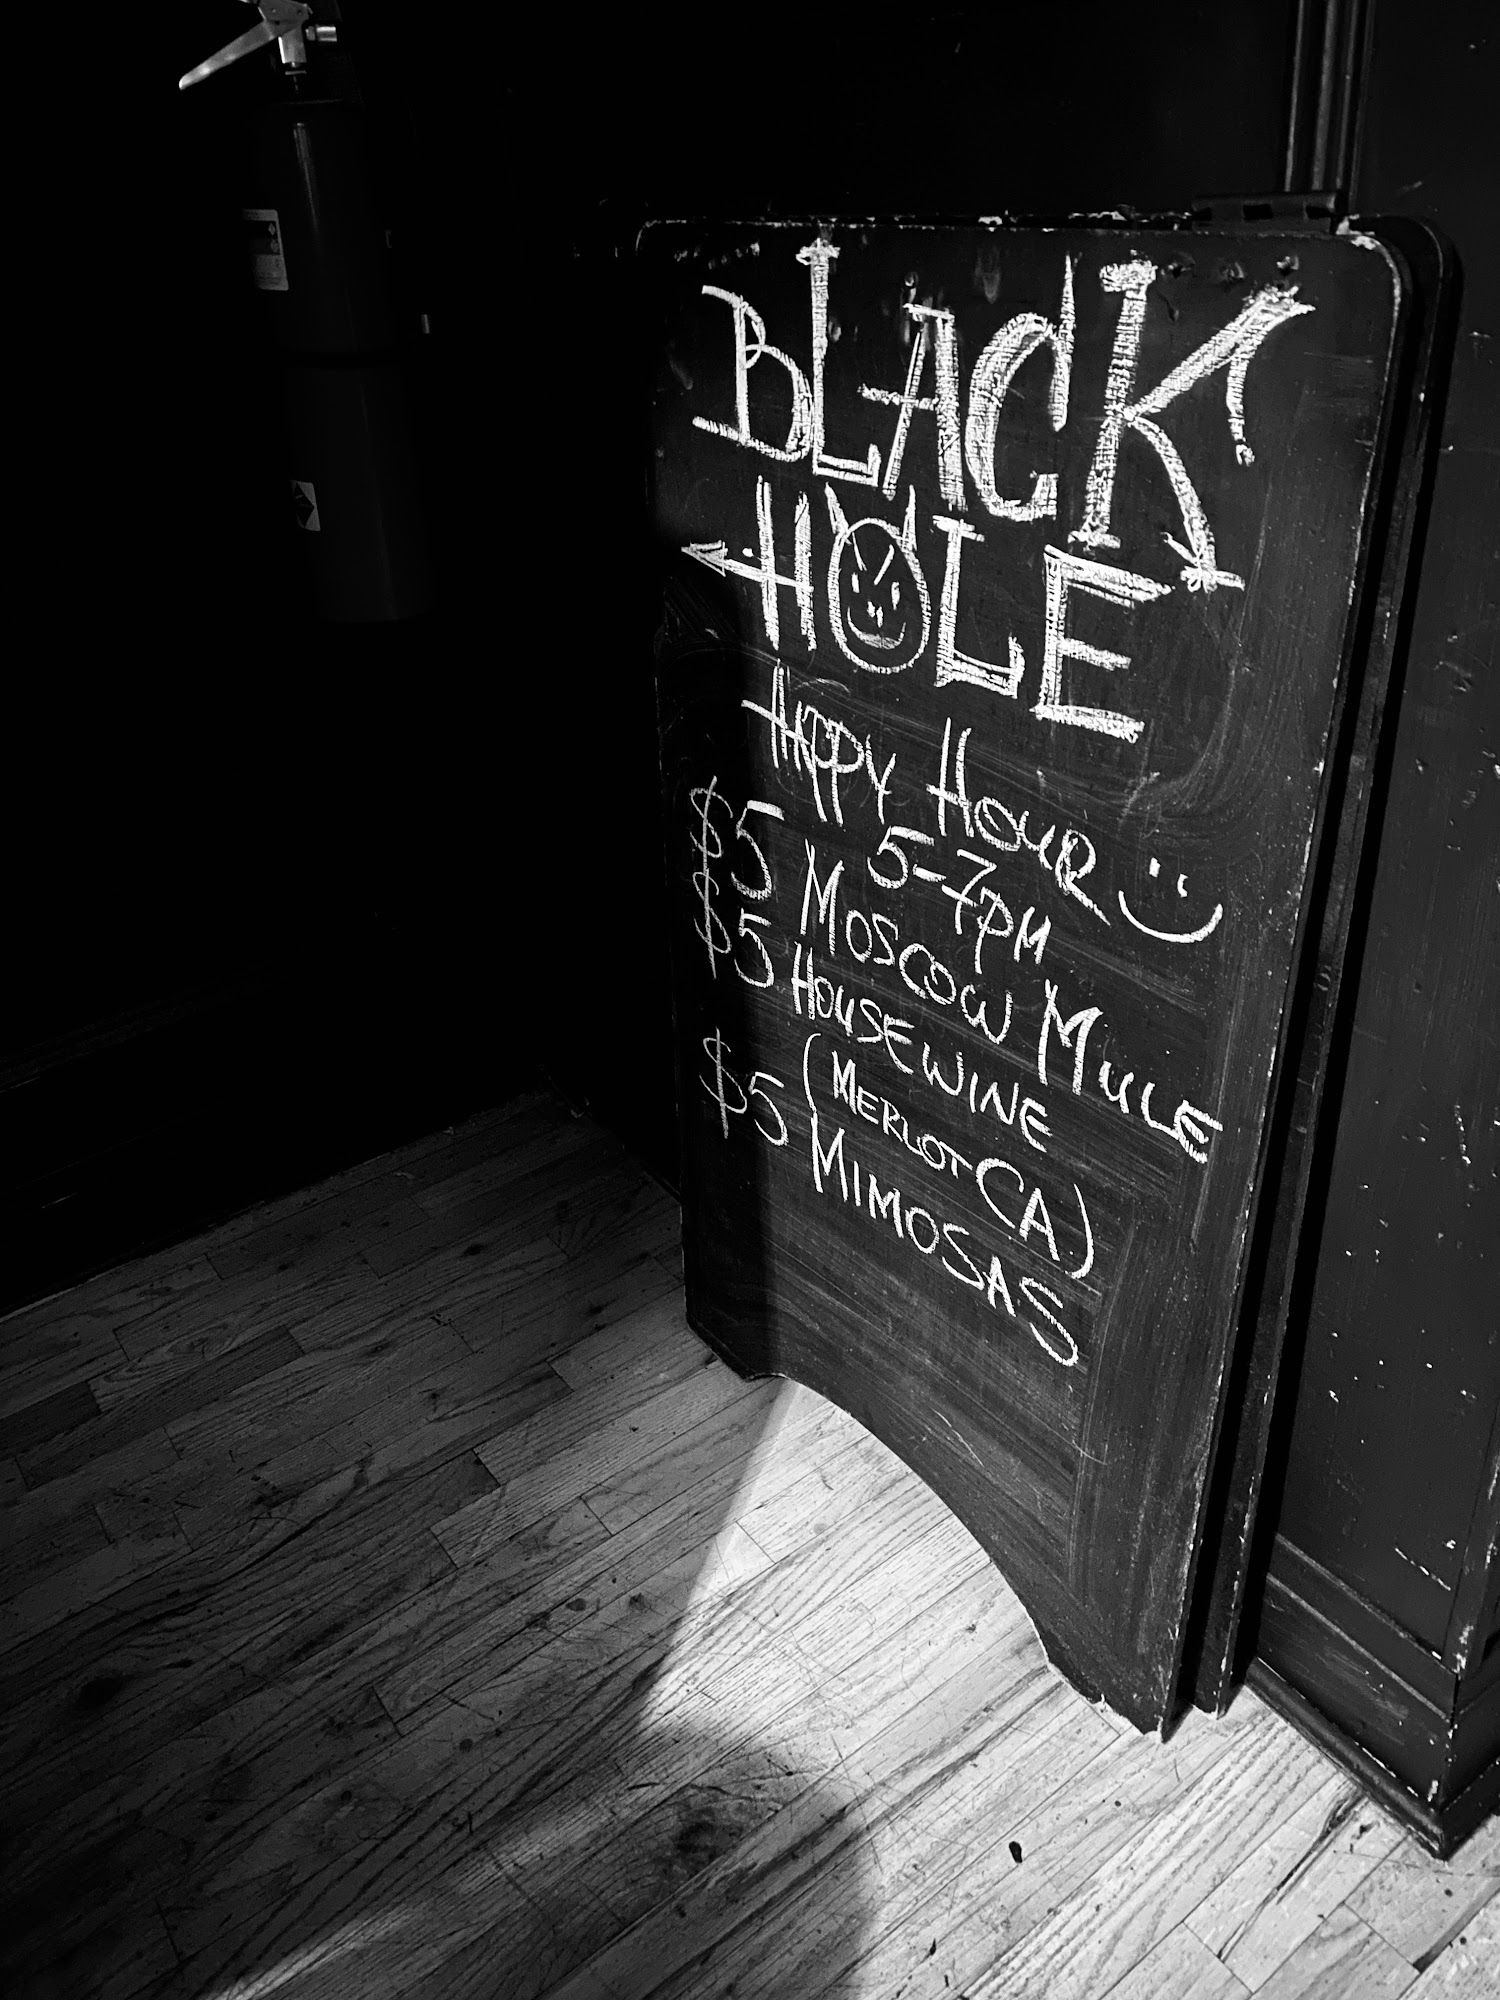 BLACK
HOLE
HAPPY HOUR
5-7PM
$5 MOSCOW MULE
$5 HOUSEWINE
(MERLOT CA)
$5 MIMOSAS